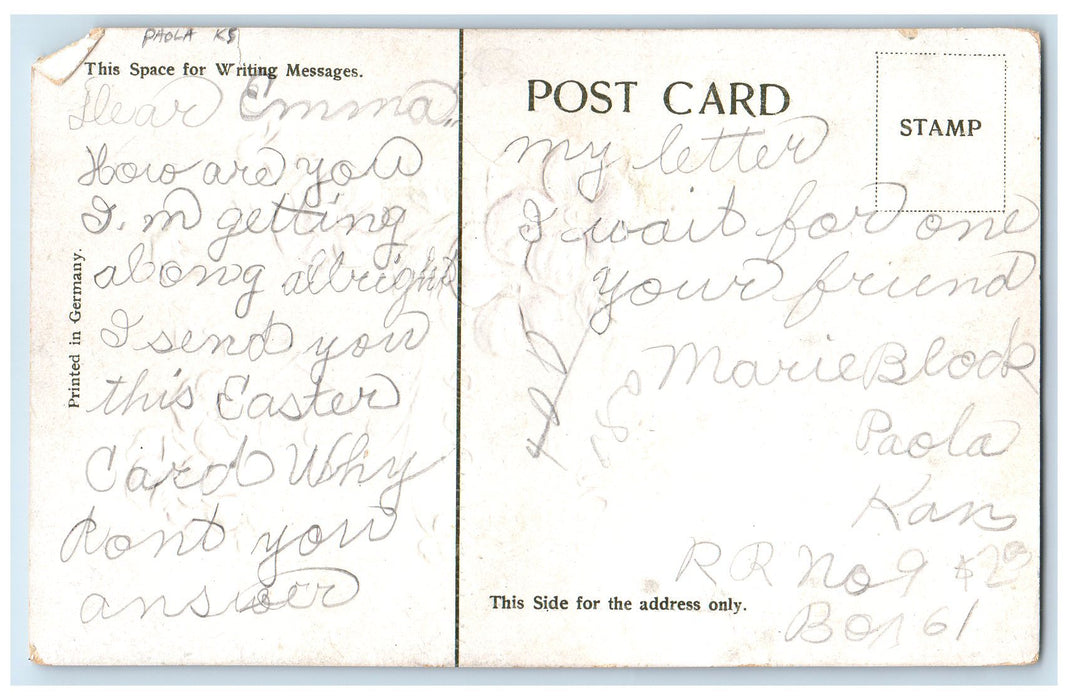 PAOLA KS
This Space for Writing Messages.
Dear Emma,,
How are you
I.m getting
along allright
I send you
this Easter
Card Why
Dont you
answer
Printed in Germany.
POST CARD
STAMP
my letter
I wait for one
your friend
Marie Block
Paola
Kans
R R No 9
Box 61
This Side for the address only.